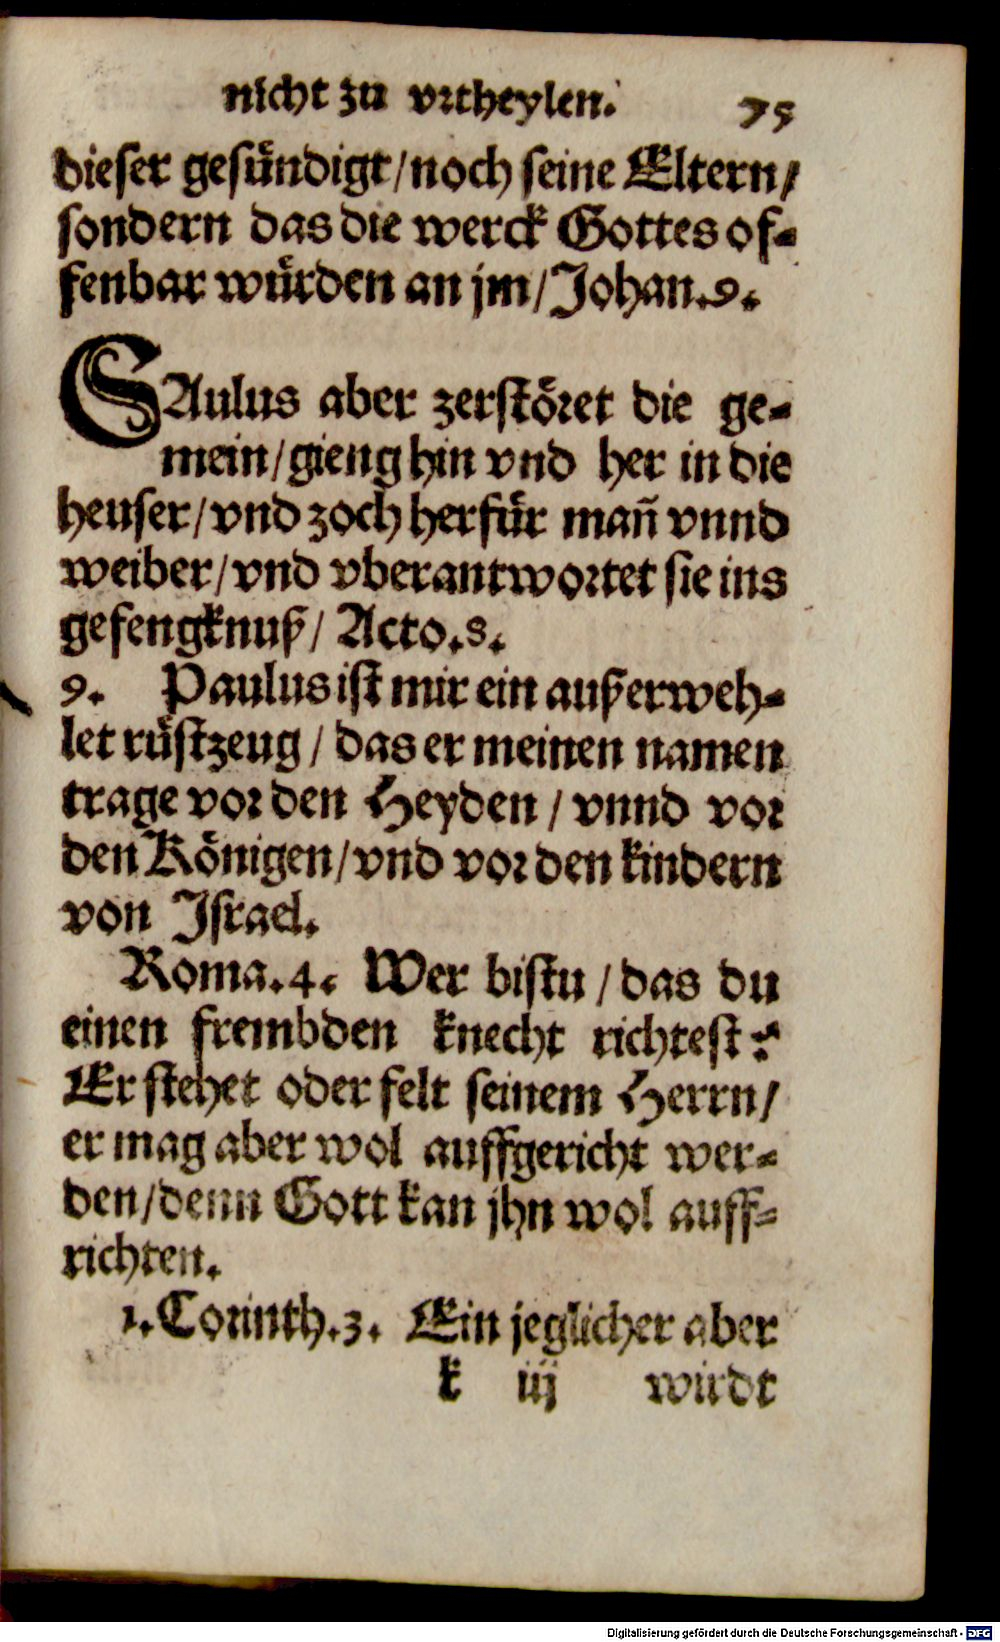 nicht zu vrtheylen. 75
dieser gesündigt/noch seine Eltern/
sondern das die werck Gottes of⸗
fenbar würden an jm/Johan.9.
SAulus aber zerstöret die ge⸗
mein/gieng hin vnd her in die
heuser/vnd zoch herfür mañ vnnd
weiber/vnd vberantwortet sie ins
gefengknuß/ Acto.8.
9. Paulus ist mir ein außerweh⸗
let rüstzeug/ das er meinen namen
trage vor den Heyden/ vnnd vor
den Königen/vnd vor den kindern
von Israel.
Roma.4. Wer bistu/das du
einen frembden knecht richtest?
Er stehet oder felt seinem Herrn/
er mag aber wol auffgericht wer⸗
den/denn Gott kan jhn wol auff⸗
richten.
1.Corinth.3. Ein jeglicher aber
k iij wirdt
Digitalisierung gefördert durch die Deutsche Forschungsgemeinschaft - DFG